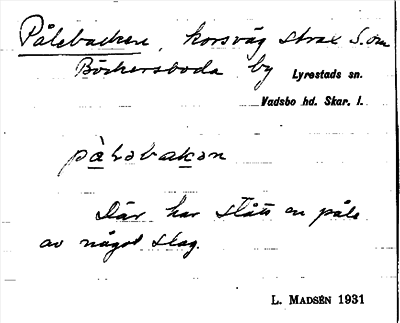 Pålebacken, korsväg strax S. om
Böckersboda by Lyrestads sn.
Vadsbo hd. Skar. l.
pàlobakon
Där har stått en påle
av något slag.
L. MADSÉN 1931